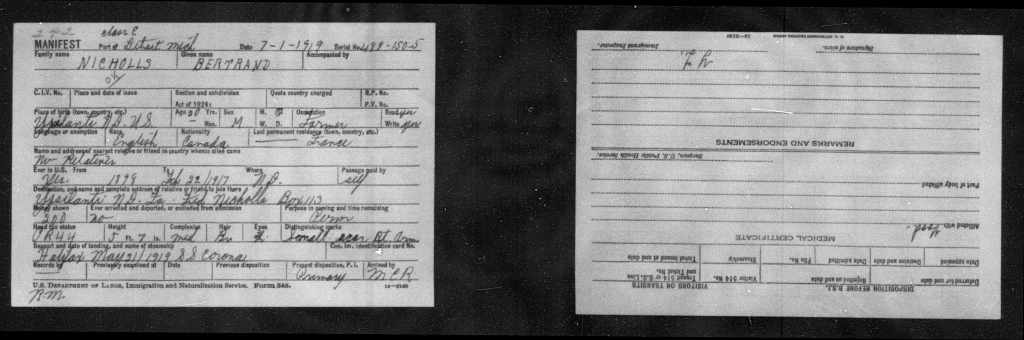 292 class C
MANIFEST Port of Detroit Mich Date 7-1-1919 Serial No. 489-150-5
Family name Given name Accompanied by
NICHOLLS BERTRAND
C.I.V. No. Place and date of issue Section and subdivision Quota country charged R.P. No.
Act of 1924: P.V. No.
Place of birth (town, country, etc.) Age 20 Yrs. Sex W. S. Occupation Read yes
Ypsilanti N.D. U.S. Mos. M W. D. Farmer Write yes
Language or exemption Race Nationality Last permanent residence (town, country, etc.)
English Canada France
Name and address of nearest relative or friend in country whence alien came
No Relatives
Ever in U.S. From To Where Passage paid by
Yes. 1899 Feb 22/1917 N.D. self
Destination, and name and complete address of relative or friend to join there
Ypsilanti N.D. Fa- Nicholls Box 113
Money shown Ever arrested and deported, or excluded from admission Purpose in coming and time remaining
200 no Perm
Head tax status Height Complexion Hair Eyes Distinguishing marks
5 ft 7 in med Br Small scar Rt. Arm
Seaport and date of landing, and name of steamship Can. Im. identification card No.
Halifax May 21/1919 S.S. Corona
Records by Previously examined at Date Previous disposition Present disposition, P.I. Arrived by
Primary M C R
U.S. DEPARTMENT OF LABOR, Immigration and Naturalization Service. Form 548.
R.M.
DISPOSITION BEFORE B.S.I. VISITORS OR TRANSITS
Deferred for and date Visitor 514 No. Transit 514 or C.R. Line and Ticket No.
Date appealed Decision and date Date admitted File No. Similarly Total transit at and date
MEDICAL CERTIFICATE
Afflicted with
Part of body afflicted
Surgeon, U.S. Public Health Service.
REMARKS AND ENDORSEMENTS
Signature of alien. Immigrant Inspector.